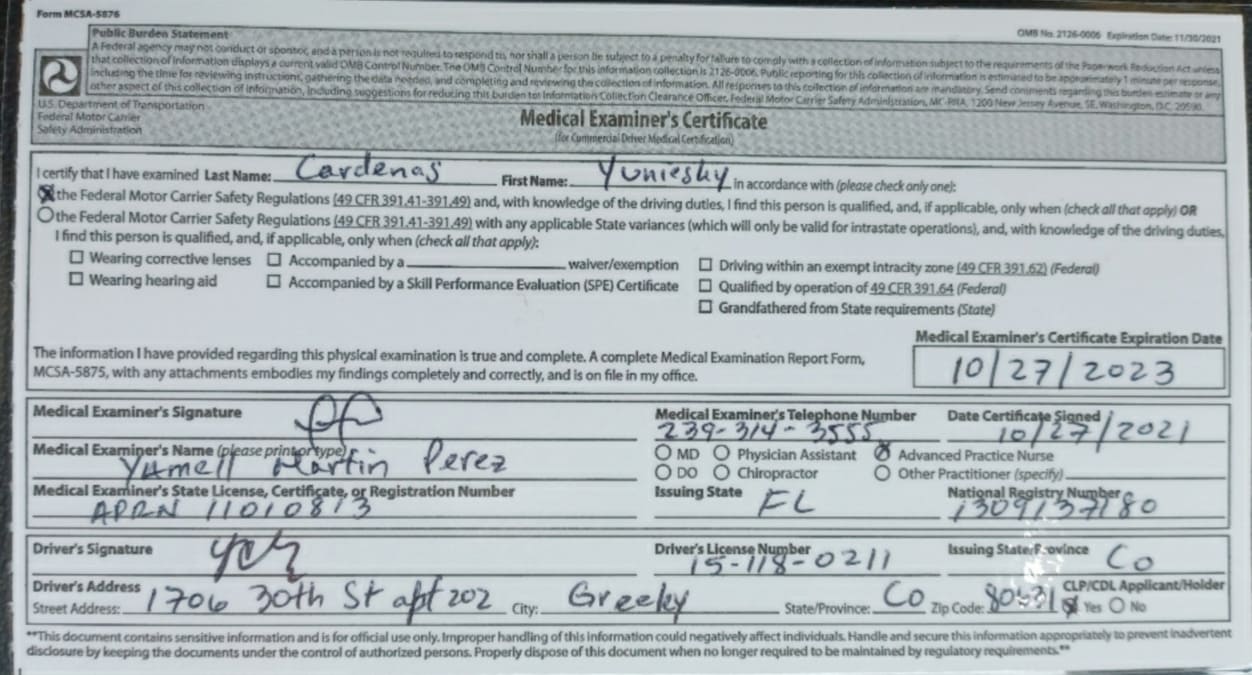 Form MCSA-5876
OMB No. 2126-0006 Expiration Date: 11/30/2021
Public Burden Statement
A Federal agency may not conduct or sponsor, and a person is not required to respond to, nor shall a person be subject to a penalty for failure to comply with a collection of information subject to the requirements of the Paperwork Reduction Act unless
that collection of information displays a current valid OMB Control Number. The OMB Control Number for this information collection is 2126-0006. Public reporting for this collection of information is estimated to be approximately 1 minute per response,
including the time for reviewing instructions, gathering the data needed, and completing and reviewing the collection of information. All responses to this collection of information are mandatory. Send comments regarding this burden estimate or any
other aspect of this collection of information, including suggestions for reducing this burden to: Information Collection Clearance Officer, Federal Motor Carrier Safety Administration, MC-RRA, 1200 New Jersey Avenue, SE, Washington, D.C. 20590.
U.S. Department of Transportation
Federal Motor Carrier
Safety Administration
Medical Examiner's Certificate
(for Commercial Driver Medical Certification)
I certify that I have examined Last Name: Cardenas First Name: Yuniesky in accordance with (please check only one):
the Federal Motor Carrier Safety Regulations (49 CFR 391.41-391.49) and, with knowledge of the driving duties, I find this person is qualified, and, if applicable, only when (check all that apply) OR
the Federal Motor Carrier Safety Regulations (49 CFR 391.41-391.49) with any applicable State variances (which will only be valid for intrastate operations), and, with knowledge of the driving duties,
I find this person is qualified, and, if applicable, only when (check all that apply):
Wearing corrective lenses Accompanied by a waiver/exemption Driving within an exempt intracity zone (49 CFR 391.62) (Federal)
Wearing hearing aid Accompanied by a Skill Performance Evaluation (SPE) Certificate Qualified by operation of 49 CFR 391.64 (Federal)
Grandfathered from State requirements (State)
Medical Examiner's Certificate Expiration Date
10/27/2023
The information I have provided regarding this physical examination is true and complete. A complete Medical Examination Report Form,
MCSA-5875, with any attachments embodies my findings completely and correctly, and is on file in my office.
Medical Examiner's Signature Medical Examiner's Telephone Number Date Certificate Signed
239-314-3555 10/27/2021
Medical Examiner's Name (please print or type) MD Physician Assistant Advanced Practice Nurse
Yamell Martin Perez DO Chiropractor Other Practitioner (specify)
Medical Examiner's State License, Certificate, or Registration Number Issuing State National Registry Number
APRN 11010813 FL 1309137180
Driver's Signature Driver's License Number Issuing State/Province
15-118-0211 Co
Driver's Address CLP/CDL Applicant/Holder
Street Address: 1706 30th St apt 202 City: Greeley State/Province: Co Zip Code: 80631 Yes No
**This document contains sensitive information and is for official use only. Improper handling of this information could negatively affect individuals. Handle and secure this information appropriately to prevent inadvertent
disclosure by keeping the documents under the control of authorized persons. Properly dispose of this document when no longer required to be maintained by regulatory requirements.**